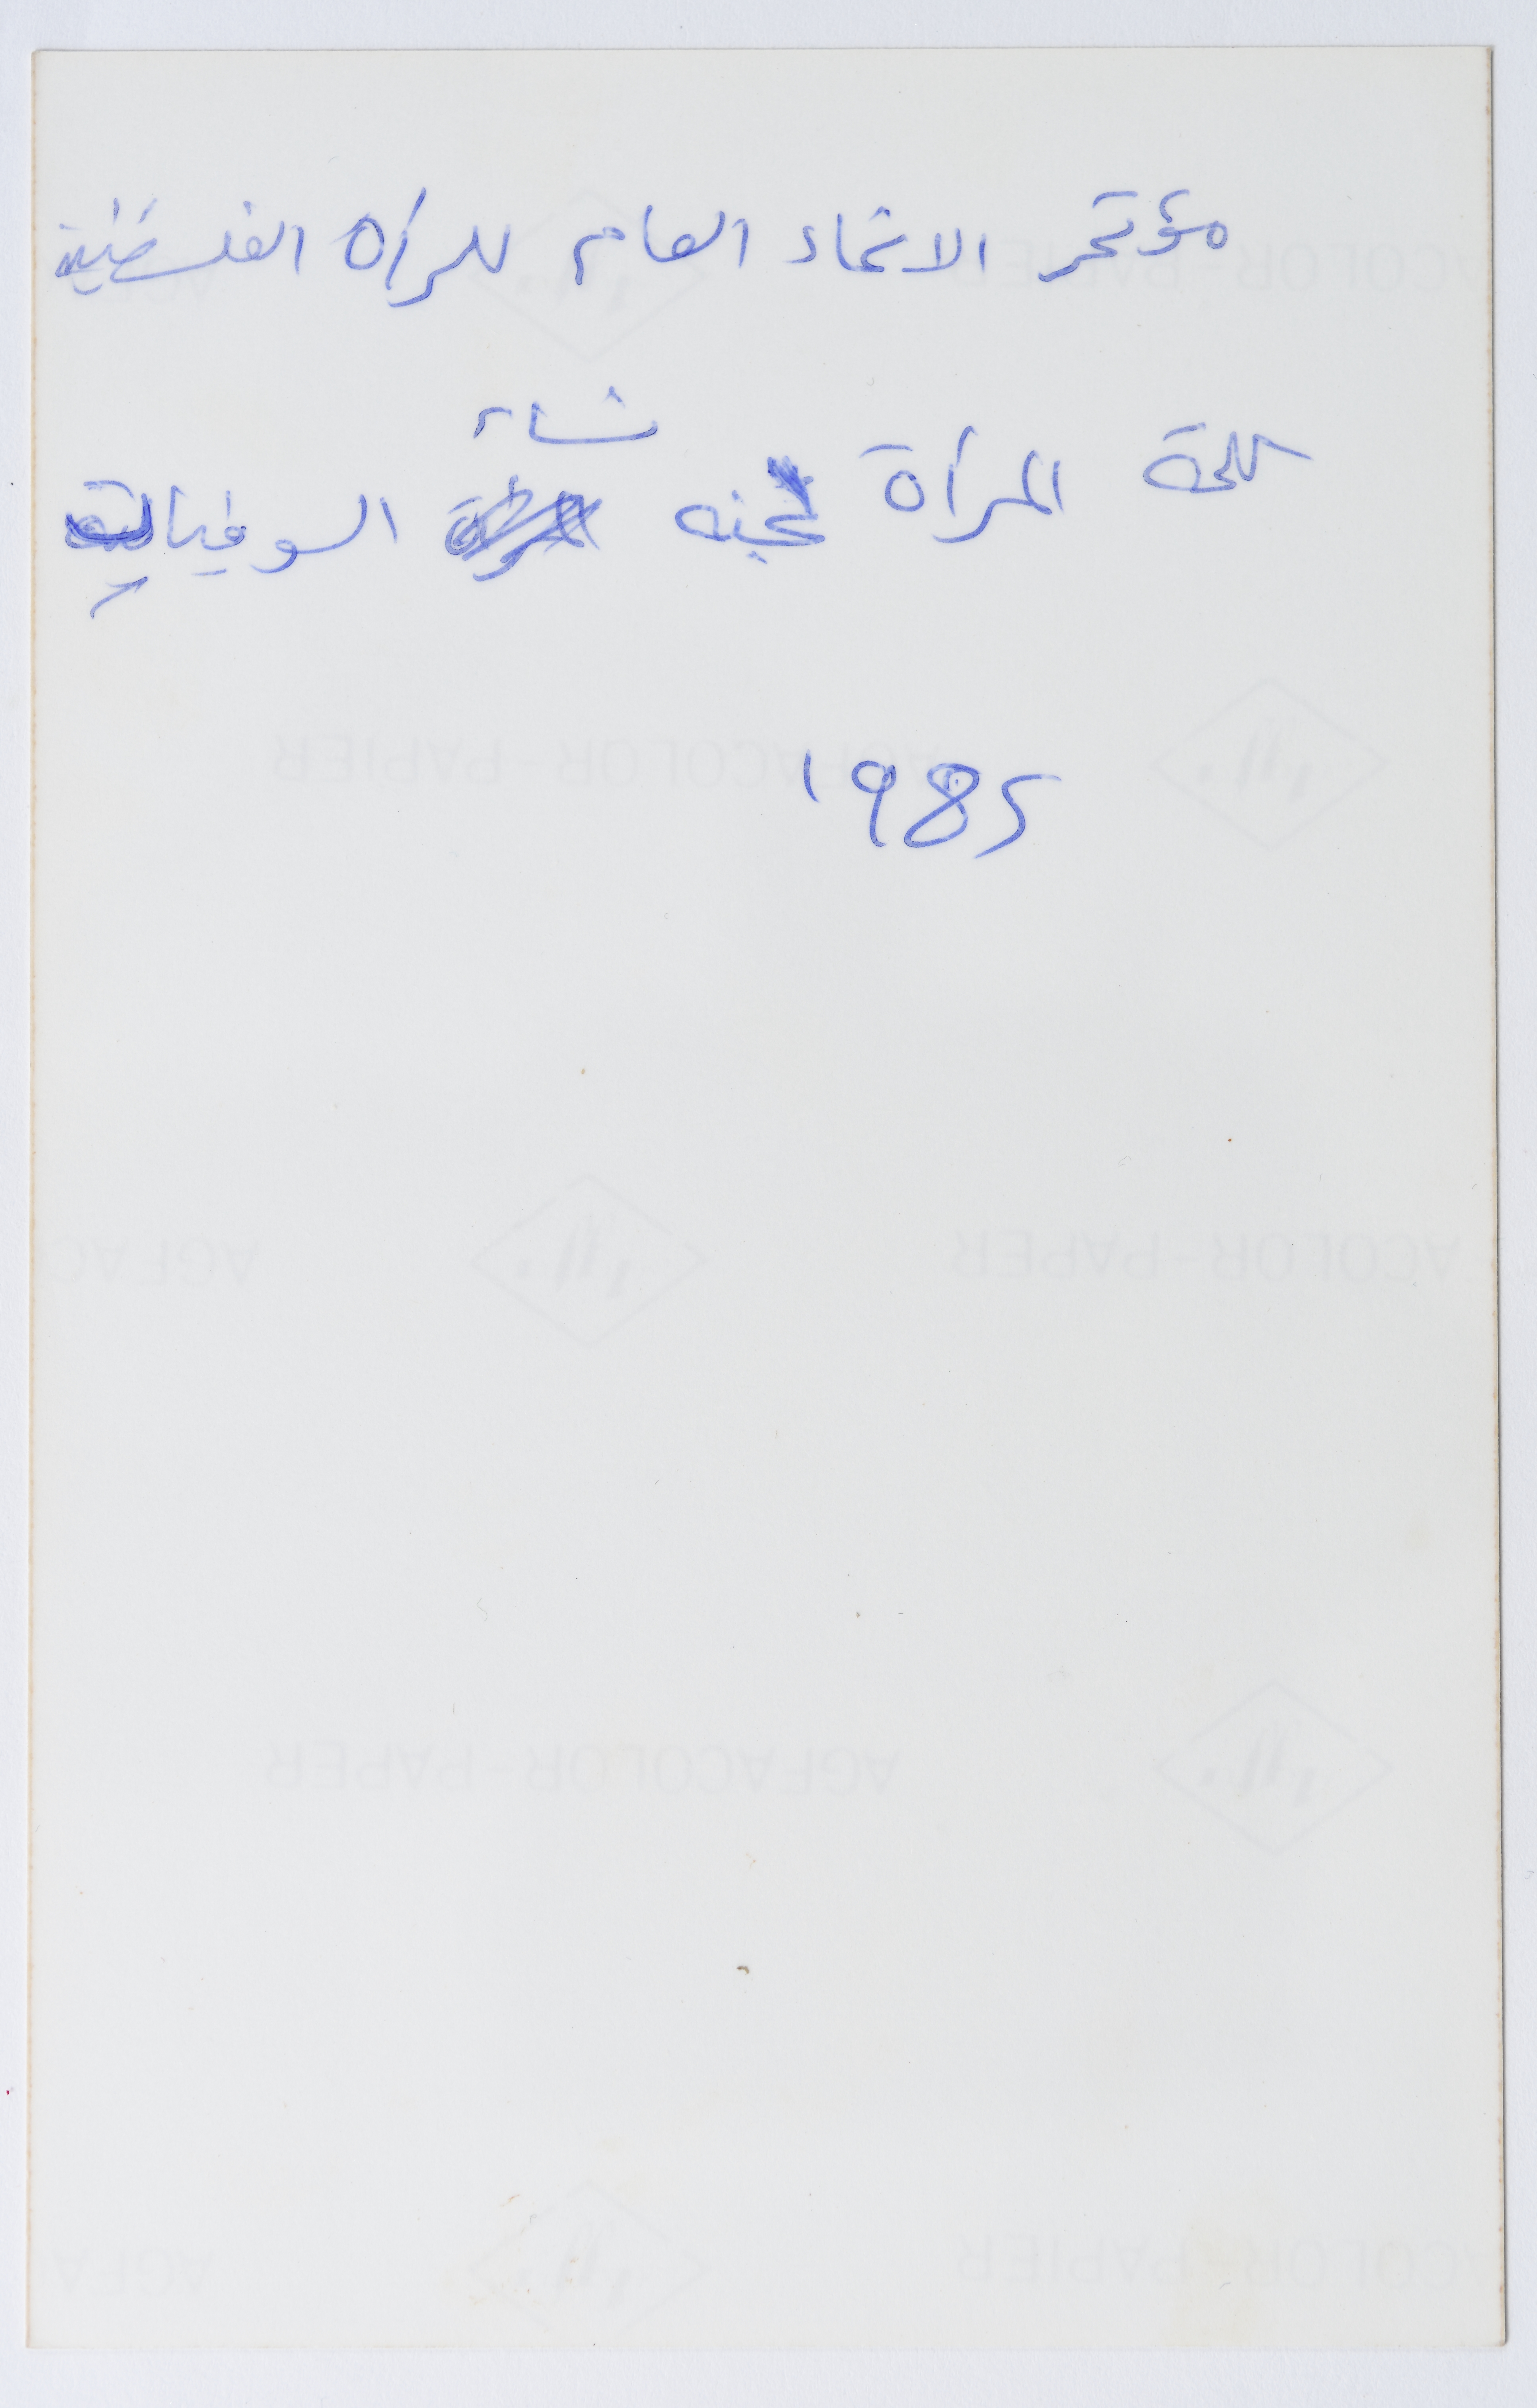 مؤتمر الاتحاد العام للمرأة الفلسطينية
كلمة المرأة لجنه نساء السوفيات
1985
AGFACOLOR-PAPIER
ACOLOR-PAPER
AGFACOLOR-PAPER